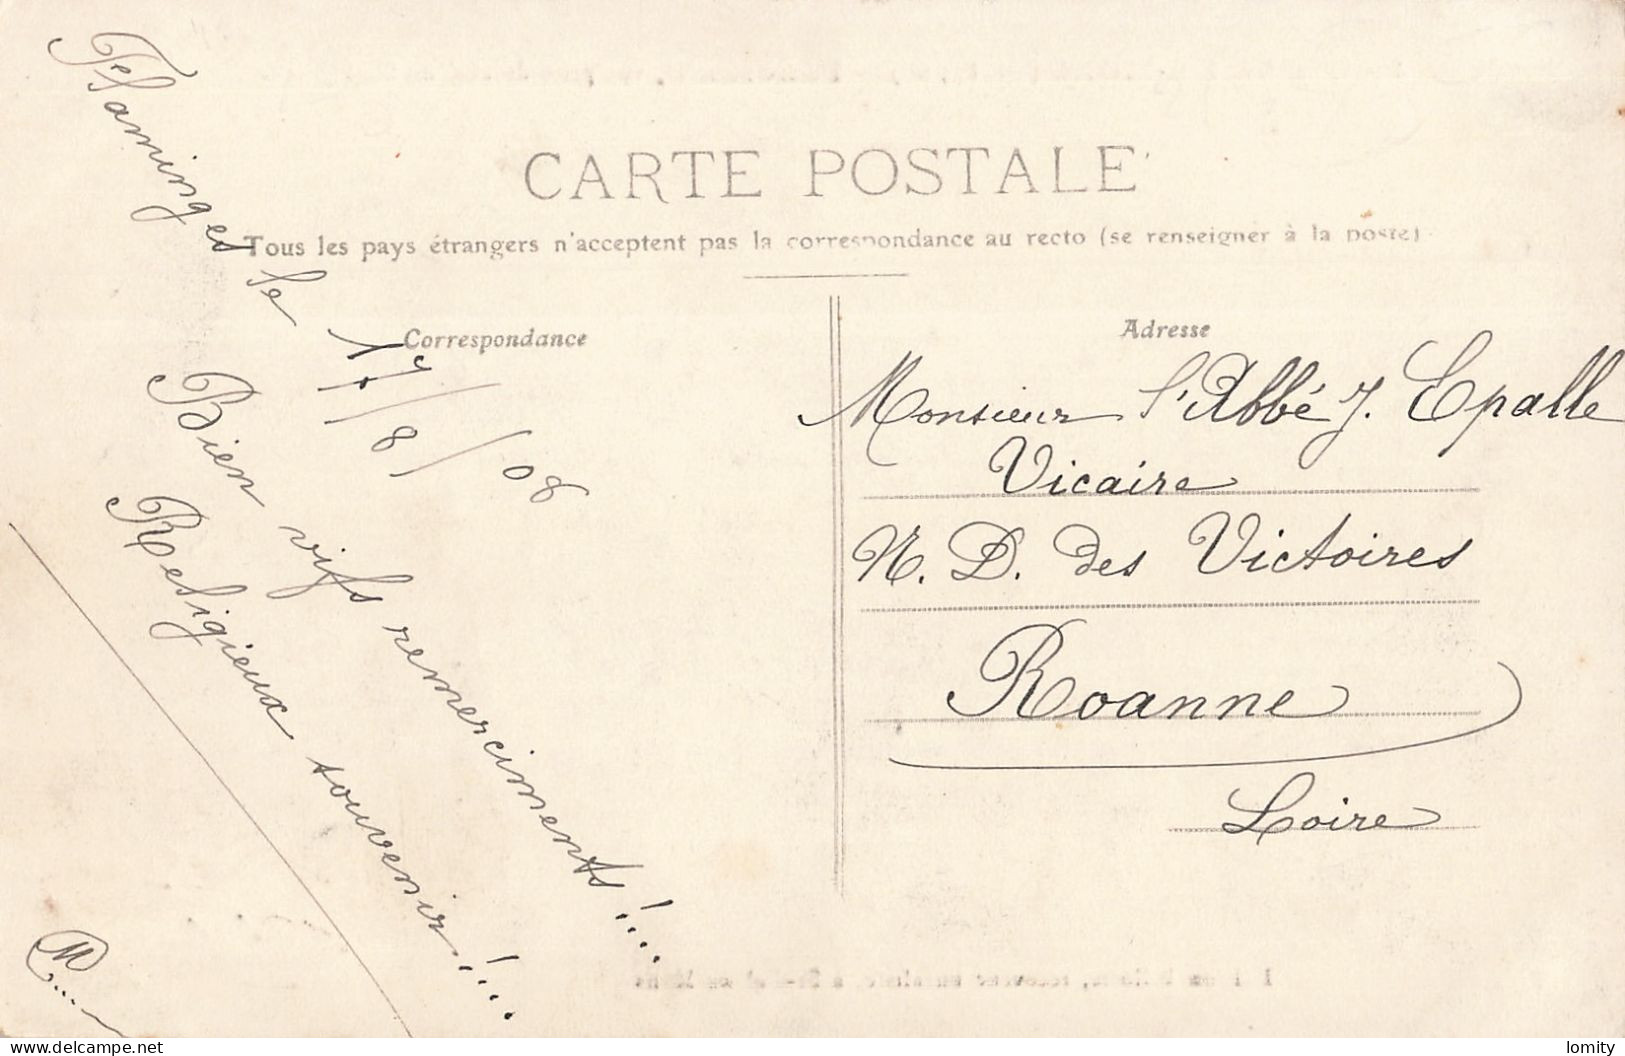 CARTE POSTALE
Tous les pays étrangers n'acceptent pas la correspondance au recto (se renseigner à la poste)
Correspondance
le 17/8/08
Bien vifs remerciments!...
Religieux souvenir!...
M....
Adresse
Monsieur l'Abbé J. Epalle
Vicaire
N. D. des Victoires
Roanne
Loire
delcampe.net
lomity